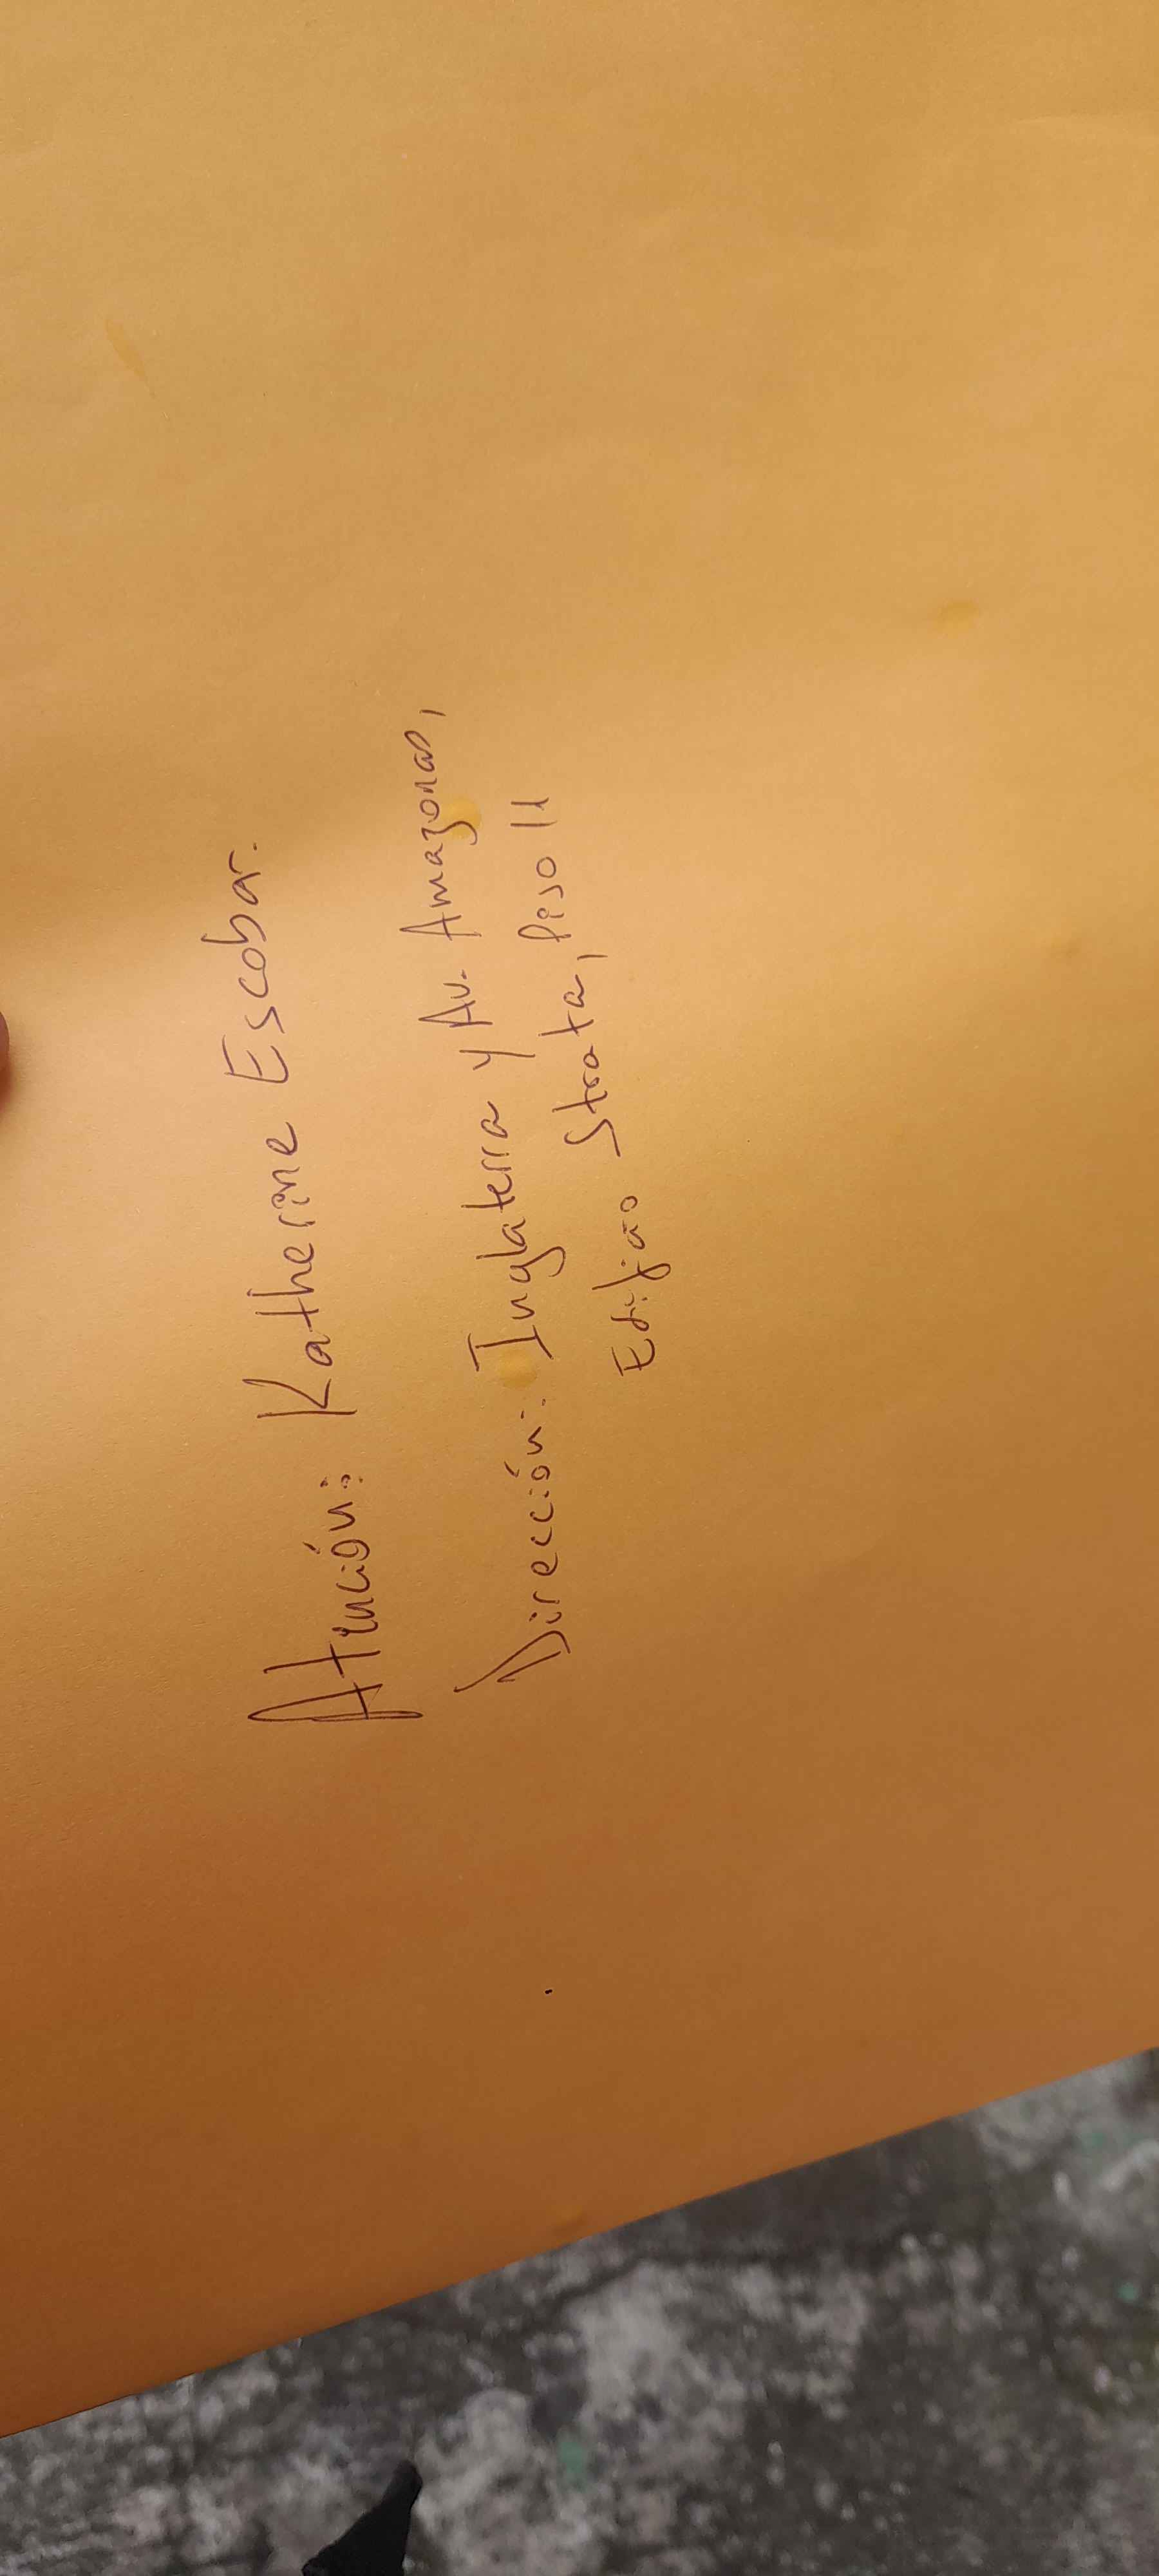 Atención: Katherine Escobar.
Dirección: Inglaterra y Av. Amazonas,
Edificio Strata, Piso 11